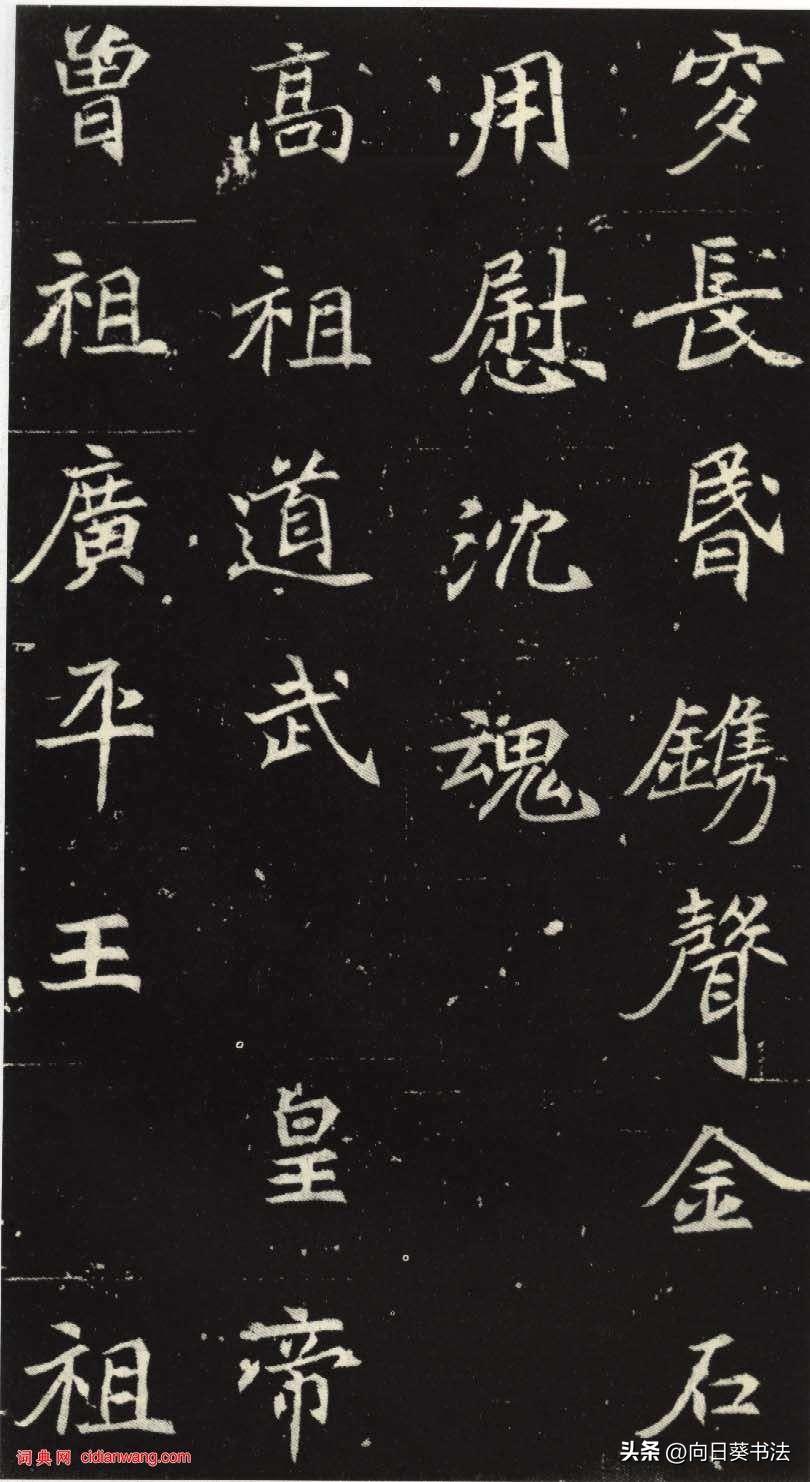 穸長昬鐫聲金石
用慰沈魂
高祖道武皇帝
曾祖廣平王祖
词典网 cidianwang.com
头条 @向日葵书法